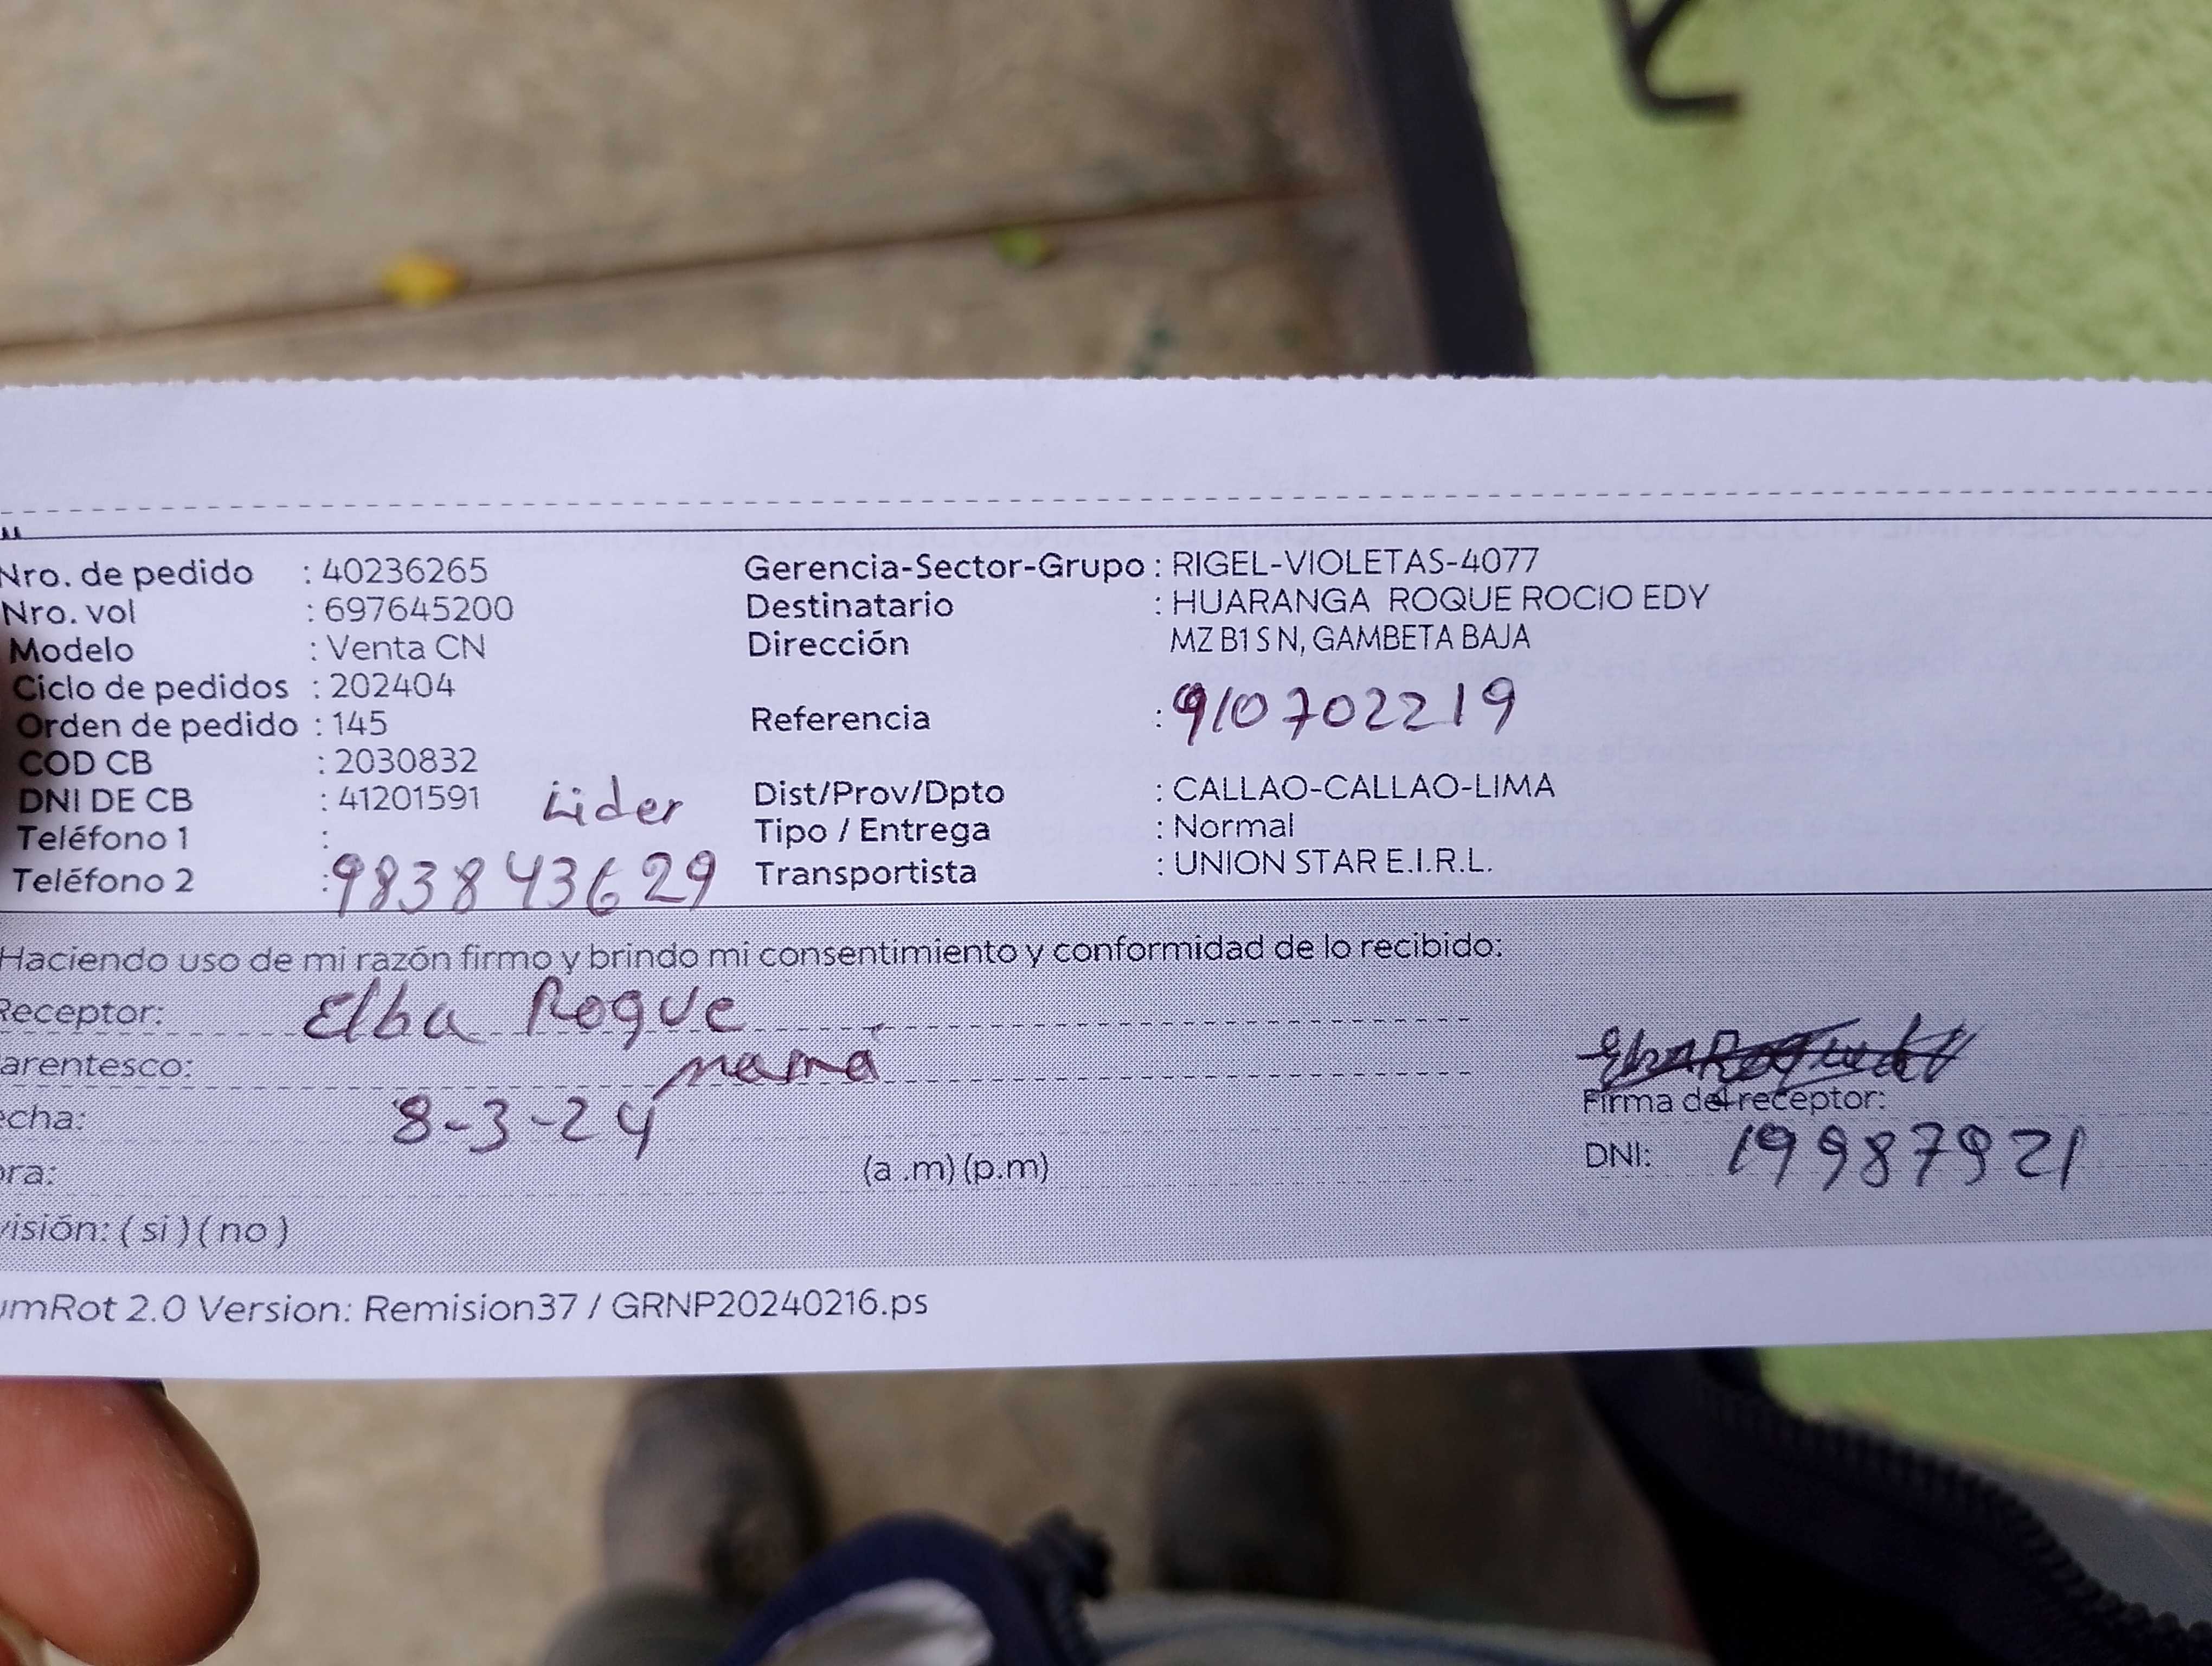 Nro. de pedido : 40236265
Nro. vol : 697645200
Modelo : Venta CN
Ciclo de pedidos : 202404
Orden de pedido : 145
COD CB : 2030832
DNI DE CB : 41201591 Lider
Teléfono 1 :
Teléfono 2 : 983843629
Gerencia-Sector-Grupo : RIGEL-VIOLETAS-4077
Destinatario : HUARANGA ROQUE ROCIO EDY
Dirección MZ B1 S N, GAMBETA BAJA
Referencia : 910702219
Dist/Prov/Dpto : CALLAO-CALLAO-LIMA
Tipo / Entrega : Normal
Transportista : UNION STAR E.I.R.L.
Haciendo uso de mi razón firmo y brindo mi consentimiento y conformidad de lo recibido:
Receptor: Elba Roque
arentesco: mamá
echa: 8-3-24
ora: (a .m) (p.m)
visión: ( si ) ( no )
Firma del receptor:
DNI: 19987921
umRot 2.0 Version: Remision37 / GRNP20240216.ps